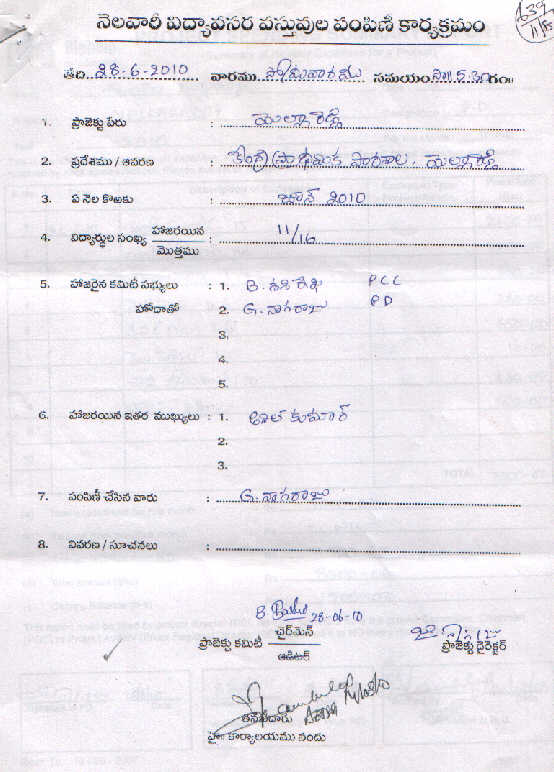 నెలవారీ విద్యావసర వస్తువుల పంపిణీ కార్యక్రమం
తేది. 28-6-2010 వారము సోమవారము సమయం సా॥ 5.30 గం॥
1. ప్రాజెక్టు పేరు :
2. ప్రదేశము / ఆవరణ : పాఠశాల,
3. ఏ నెల కొఱకు : జూన్ 2010
4. విద్యార్థుల సంఖ్య హాజరయిన / మొత్తము : 11/16
5. హాజరైన కమిటీ సభ్యులు : 1. B. PCC
హోదాతో 2. G. నాగరాజు PD
3.
4.
5.
6. హాజరయిన ఇతర ముఖ్యులు : 1. కుమార్
2.
3.
7. పంపిణీ చేసిన వారు : G. నాగరాజు
8. వివరణ / సూచనలు :
28-06-10
ప్రాజెక్టు కమిటీ చైర్‌మెన్ / ఆడిటర్
ప్రాజెక్టు డైరెక్టర్
కార్యాలయము నందు